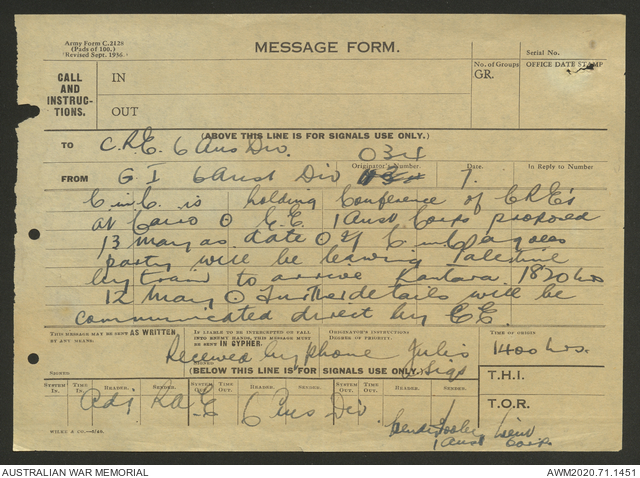 Army Form C.2128
(Pads of 100.)
(Revised Sept. 1936)
MESSAGE FORM.
Serial No.
CALL AND INSTRUC-TIONS.
IN
No. of Groups
GR.
OFFICE DATE STAMP
OUT
(ABOVE THIS LINE IS FOR SIGNALS USE ONLY.)
TO C.R.E. 6 Aus Div.
034
Originator's Number. Date. In Reply to Number
FROM G I 6 Aust Div 7.
C in C. is holding Conference of CRE's
at Cairo O C.E. 1 Aust Corps proposed
13 May as date O If C in C agrees
party will be leaving Palestine
by train to arrive Kantara 1820 hrs
12 May O Further details will be
communicated direct by C.E.
THIS MESSAGE MAY BE SENT AS WRITTEN BY ANY MEANS.
IF LIABLE TO BE INTERCEPTED OR FALL INTO ENEMY HANDS, THIS MESSAGE MUST BE SENT IN CYPHER.
ORIGINATOR'S INSTRUCTIONS
DEGREE OF PRIORITY.
TIME OF ORIGIN
1400 hrs.
Received by phone
Sigs
SIGNED.
(BELOW THIS LINE IS FOR SIGNALS USE ONLY.)
T.H.I.
SYSTEM IN. TIME IN. READER. SENDER. SYSTEM OUT. TIME OUT. READER. SENDER. SYSTEM OUT. TIME OUT. READER. SENDER.
T.O.R.
Adj RAE 6 Aus Div
Lieut
1 Aust Corps.
AUSTRALIAN WAR MEMORIAL
AWM2020.71.1451